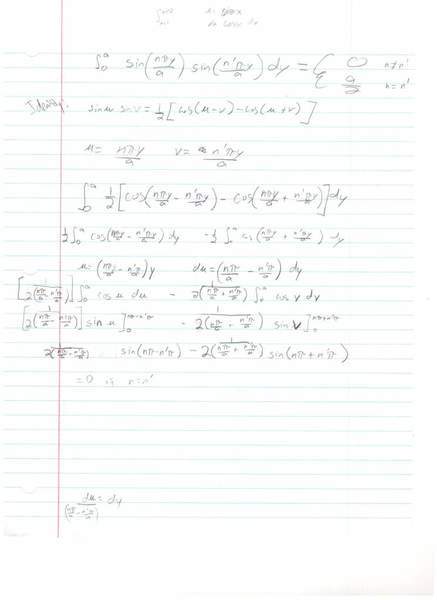 ∫₀ᵃ sin(nπy/a) sin(n'πy/a) dy = { 0 n≠n'
a/2 n=n'
Identity: sin u sin v = 1/2 [cos(u-v) - cos(u+v)]
u = nπy/a v = n'πy/a
∫₀ᵃ 1/2 [cos(nπy/a - n'πy/a) - cos(nπy/a + n'πy/a)] dy
1/2 ∫₀ᵃ cos(nπy/a - n'πy/a) dy - 1/2 ∫₀ᵃ cos(nπy/a + n'πy/a) dy
u = (nπ/a - n'π/a) y du = (nπ/a - n'π/a) dy
[1/2(nπ/a - n'π/a)] ∫₀ᵃ cos u du - 1/2(nπ/a + n'π/a) ∫₀ᵃ cos v dv
[1/2(nπ/a - n'π/a)] sin u ]₀^(nπ-n'π) - 1/2(nπ/a + n'π/a) sin v ]₀^(nπ+n'π)
1/2(nπ/a - n'π/a) sin(nπ-n'π) - 1/2(nπ/a + n'π/a) sin(nπ+n'π)
=0 if n=n'
du/(nπ/a - n'π/a) = dy